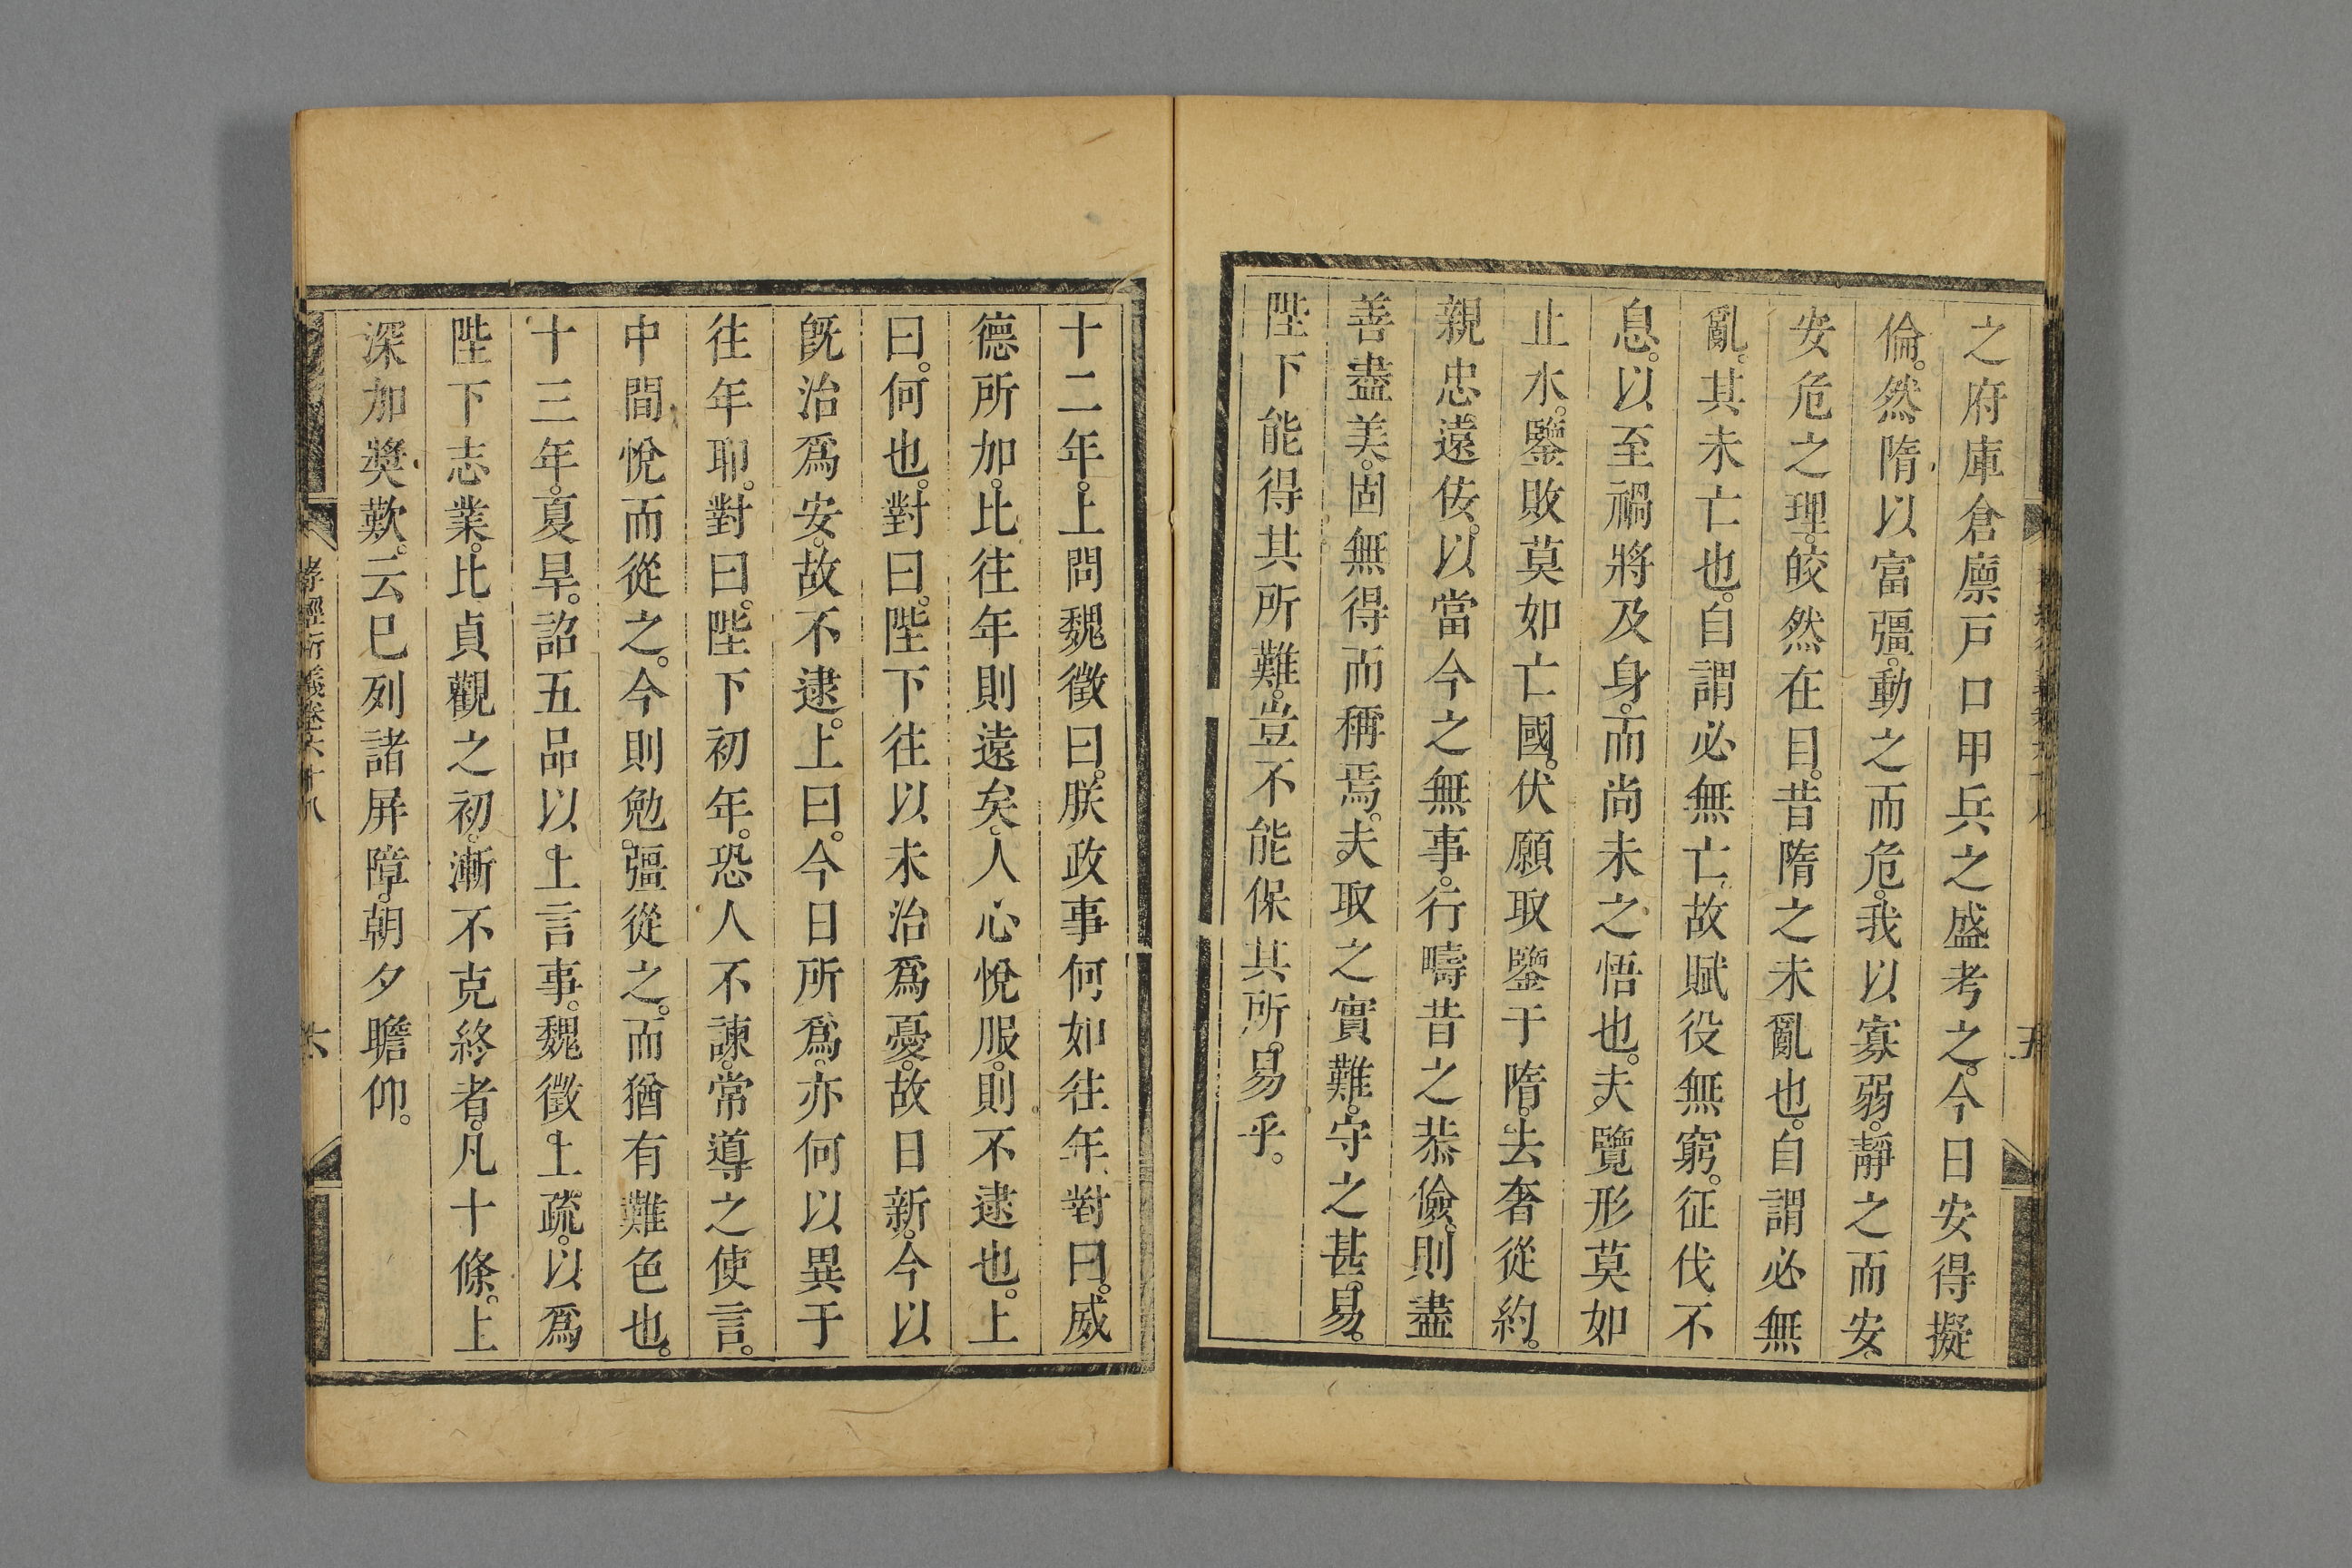 之府庫倉廩戶口甲兵之盛考之。今日安得擬
倫。然隋以富彊。動之而危。我以寡弱。靜之而安。
安危之理。皎然在目。昔隋之未亂也。自謂必無
亂。其未亡也。自謂必無亡。故賦役無窮。征伐不
息。以至禍將及身。而尚未之悟也。夫覽形莫如
止水。鑒敗莫如亡國。伏願取鑒于隋。去奢從約。
親忠遠佞。以當今之無事。行疇昔之恭儉。則盡
善盡美。固無得而稱焉。夫取之實難。守之甚易。
陛下能得其所難。豈不能保其所易乎。
十二年。上問魏徵曰。朕政事何如往年。對曰。威
德所加。比往年則遠矣。人心悅服。則不逮也。上
曰。何也。對曰。陛下往以未治爲憂。故日新。今以
旣治爲安。故不逮。上曰。今日所爲。亦何以異于
往年耶。對曰。陛下初年。恐人不諫。常導之使言。
中間悅而從之。今則勉彊從之。而猶有難色也。
十三年。夏旱。詔五品以上言事。魏徵上疏。以爲
陛下志業。比貞觀之初。漸不克終者。凡十條。上
深加奬歎。云已列諸屏障。朝夕瞻仰。
孝經衍義卷六十八
六